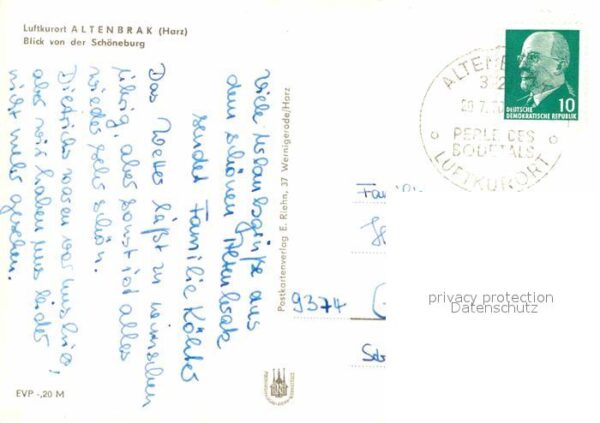 Luftkurort ALTENBRAK (Harz)
Blick von der Schöneburg
Viele Urlaubsgrüße aus
dem schönen Altenbrak
sendet Familie Köhler
Das Wetter läßt zu wünschen
übrig, aber sonst ist alles
wieder sehr schön.
Dietrichs waren vor uns hier,
aber wir haben uns leider
nicht mehr gesehen.
EVP -,20 M
Postkartenverlag E. Riehn, 37 Wernigerode/Harz
DEUTSCHE
DEMOKRATISCHE REPUBLIK
10
PERLE DES
BODETALS
LUFTKURORT
Fam
9374
privacy protection
Datenschutz